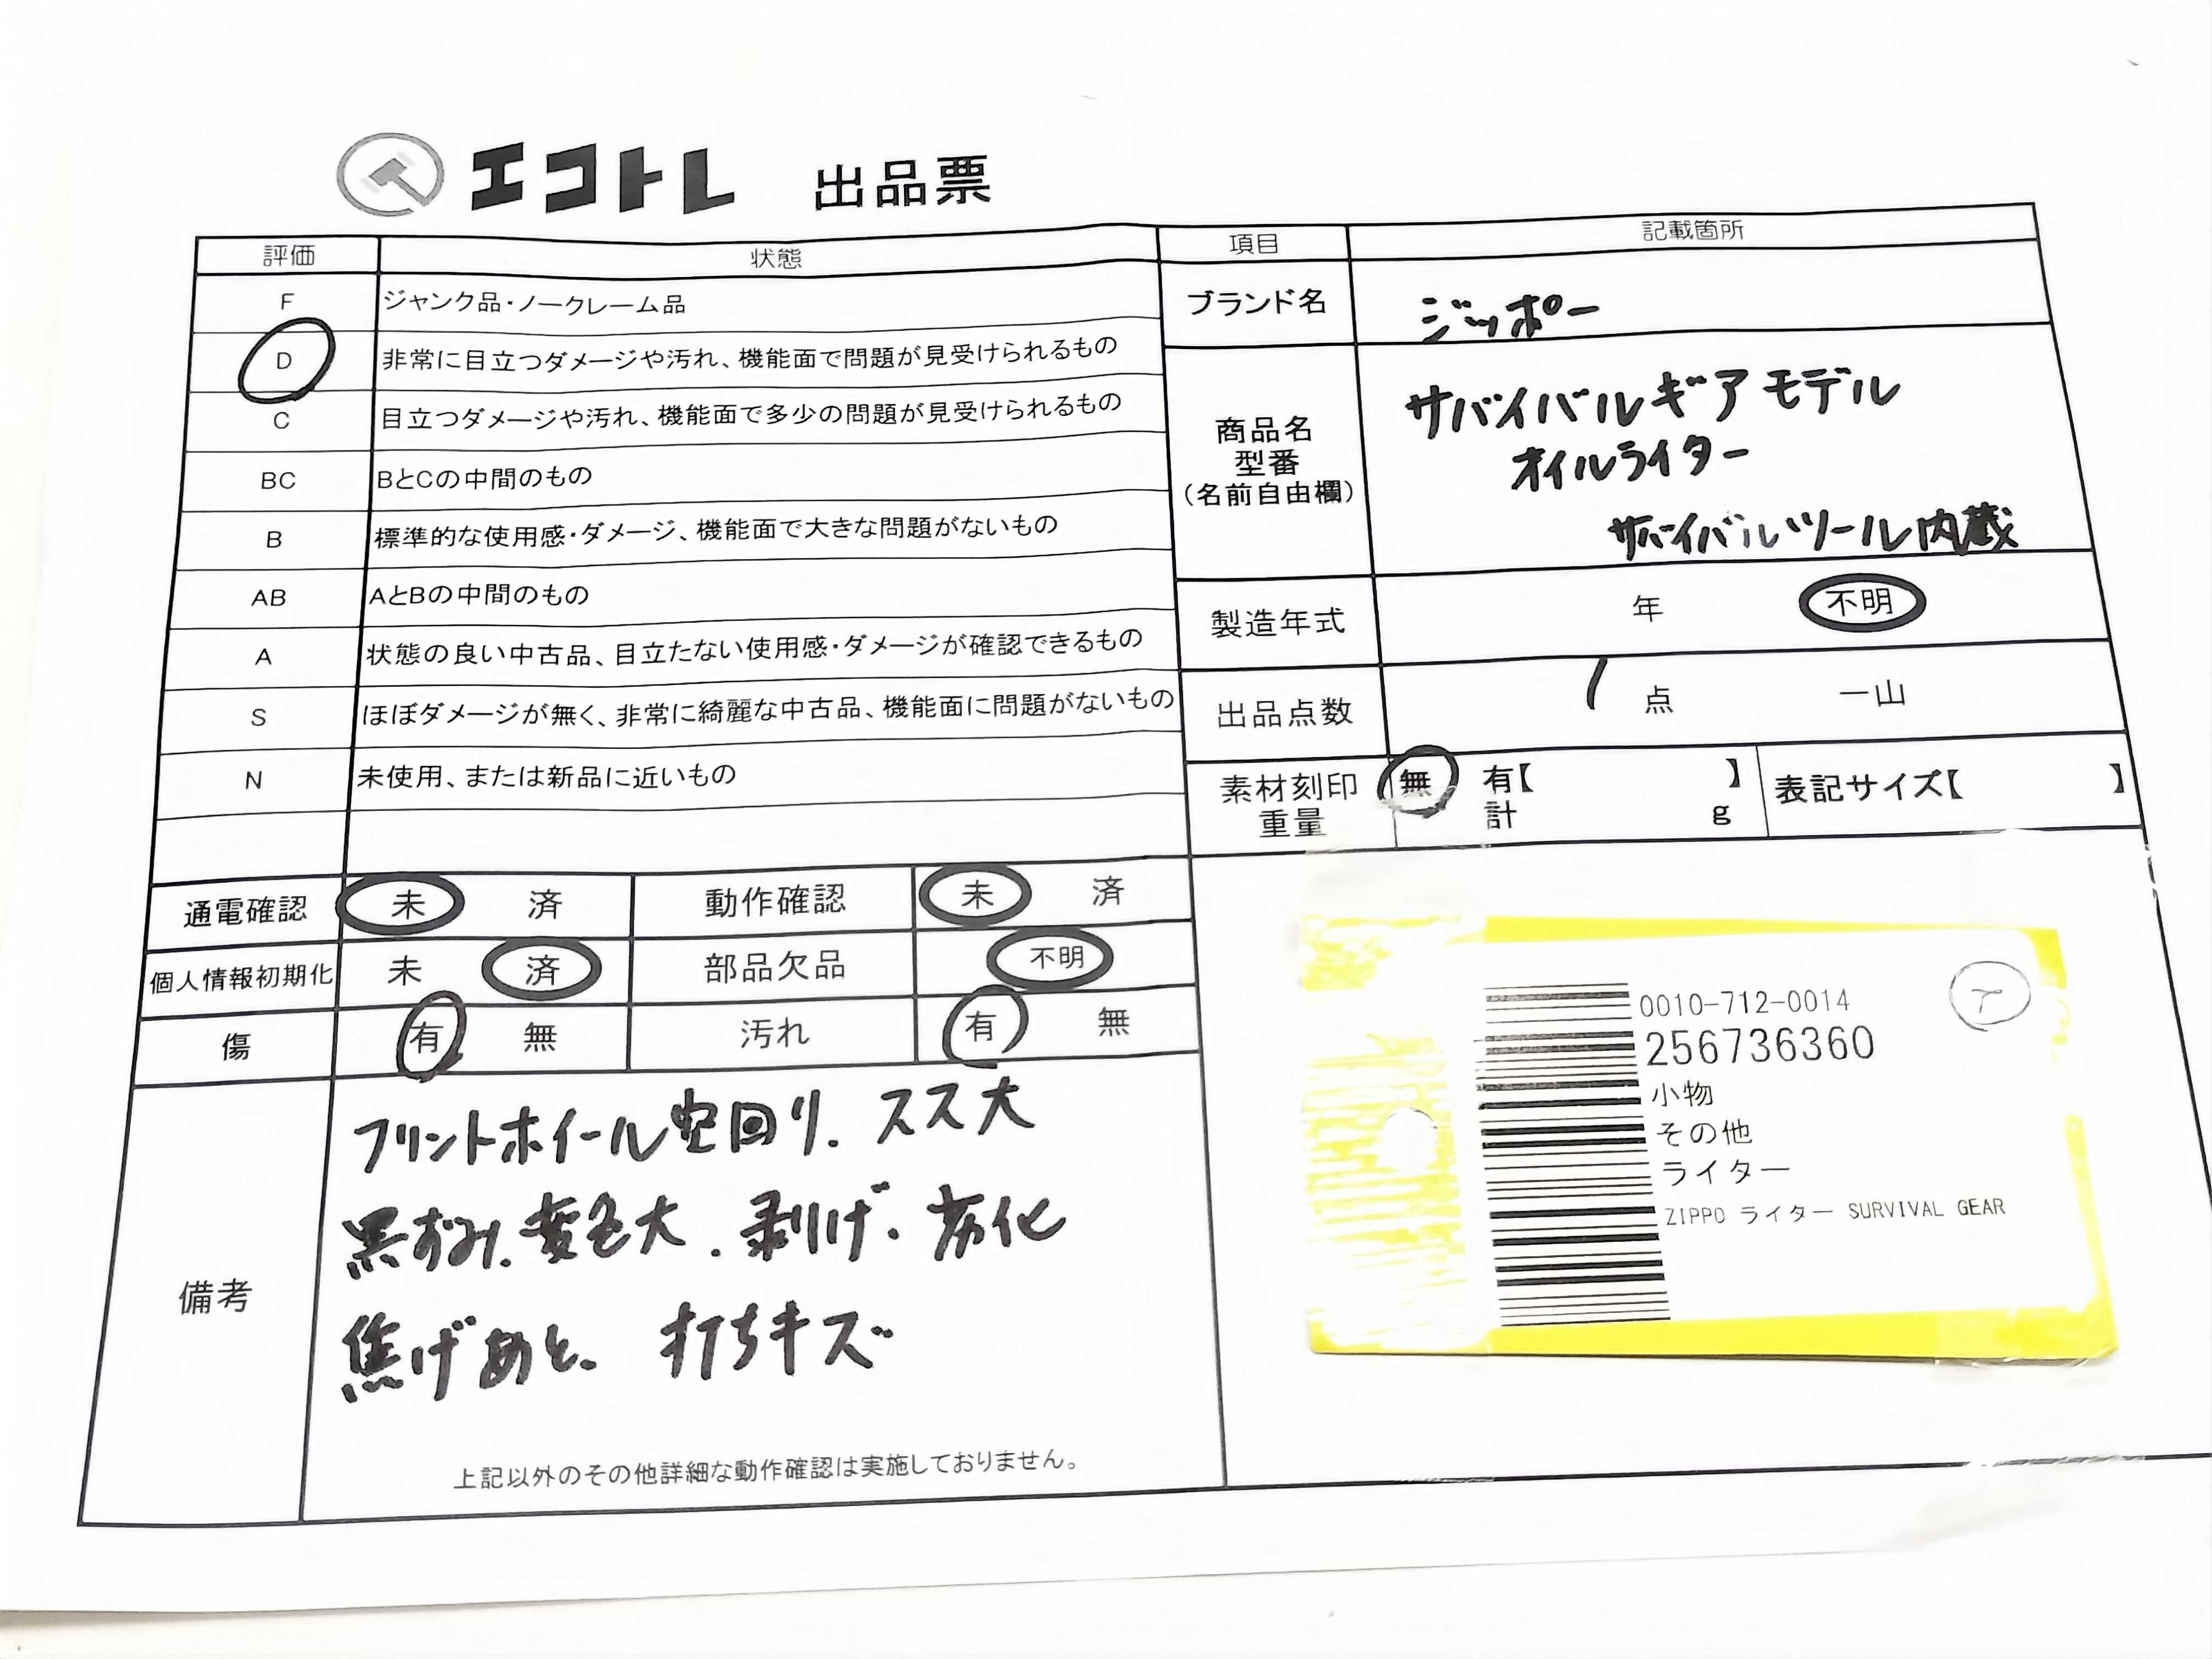 エコトレ 出品票
評価 状態
F ジャンク品・ノークレーム品
D 非常に目立つダメージや汚れ、機能面で問題が見受けられるもの
C 目立つダメージや汚れ、機能面で多少の問題が見受けられるもの
BC BとCの中間のもの
B 標準的な使用感・ダメージ、機能面で大きな問題がないもの
AB AとBの中間のもの
A 状態の良い中古品、目立たない使用感・ダメージが確認できるもの
S ほぼダメージが無く、非常に綺麗な中古品、機能面に問題がないもの
N 未使用、または新品に近いもの
通電確認 未 済 動作確認 未 済
個人情報初期化 未 済 部品欠品 不明
傷 有 無 汚れ 有 無
備考
フリントホイール空回り. スス大
黒ずみ. 変色大. 剥げ. 劣化
焦げあと、 打ちキズ
上記以外のその他詳細な動作確認は実施しておりません。
項目 記載箇所
ブランド名 ジッポー
商品名
型番
(名前自由欄)
サバイバルギア モデル
オイルライター
サバイバルツール内蔵
製造年式 年 不明
出品点数 1 点 一山
素材刻印 無 有【 】 表記サイズ【 】
重量 計 g
0010-712-0014
256736360
小物
その他
ライター
ZIPPO ライター SURVIVAL GEAR